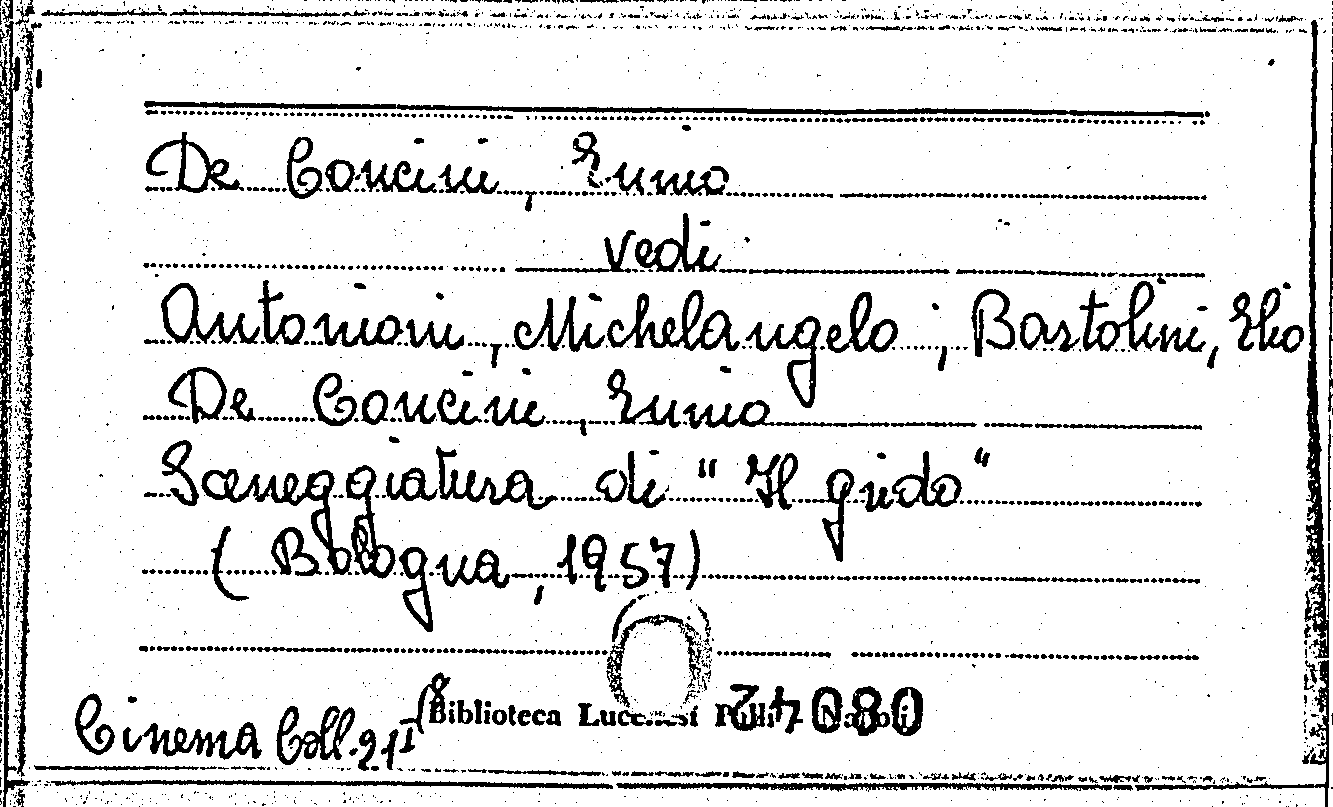 De Concini, Ennio
vedi
Antonioni, Michelangelo; Bartolini, Elio
De Concini, Ennio
Sceneggiatura di "Il grido"
(Bologna, 1957)
Biblioteca Lucchesi Palli - Napoli
Cinema Coll.